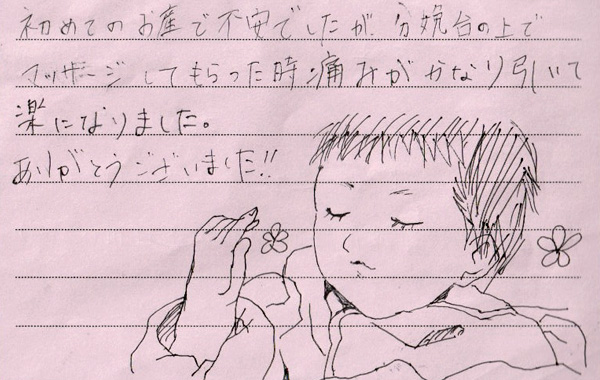 初めてのお産で不安でしたが、分娩台の上で
マッサージしてもらった時痛みがかなり引いて
楽になりました。
ありがとうございました!!